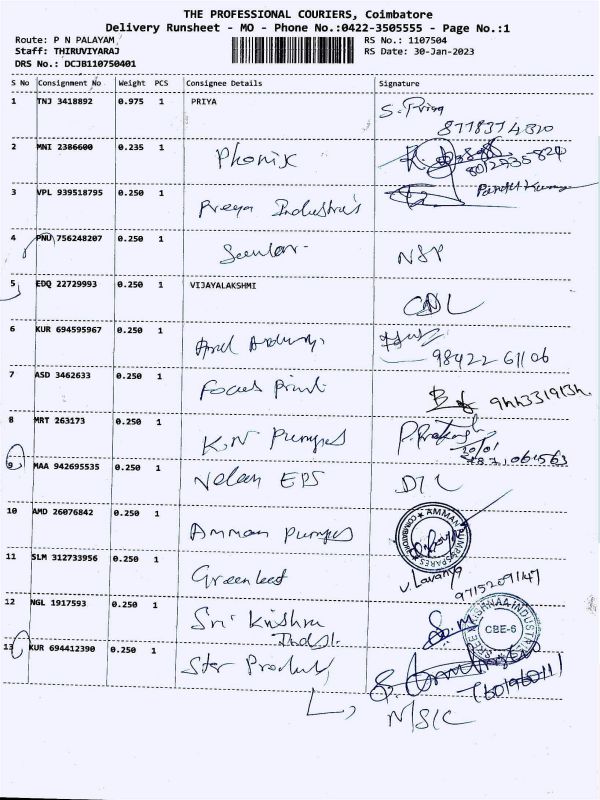 THE PROFESSIONAL COURIERS, Coimbatore
Delivery Runsheet - MO - Phone No.:0422-3505555 - Page No.:1
Route: P N PALAYAM
Staff: THIRUVIYARAJ
DRS No.: DCJB110750401
RS No.: 1107504
RS Date: 30-Jan-2023
S No Consignment No Weight PCS Consignee Details Signature
1 TNJ 3418892 0.975 1 PRIYA S. Priya
8778374320
2 MNI 2386600 0.235 1 Phonix
3 VPL 939518795 0.250 1 Preeya Industris
4 PNU 756248207 0.250 1 NSP
5 EDQ 22729993 0.250 1 VIJAYALAKSHMI CNL
6 KUR 694595967 0.250 1
98422 61106
7 ASD 3462633 0.250 1 Focus Print
8 MRT 263173 0.250 1 K.N Pumpes P. Prakash
30/01
9 MAA 942695535 0.250 1 Velan EPS D/L
10 AMD 26076842 0.250 1 Amman Pumpes
AMMAN PUMPS SPARES COIMBATORE
11 SLM 312733956 0.250 1 Greenleef V. Lavanya
97152091147
12 NGL 1917593 0.250 1 Sri Krishna
Indst. S.M
SREE KRISHNAA INDUSTRIES
CBE-6
13 KUR 694412390 0.250 1 Star Products
N/S/C